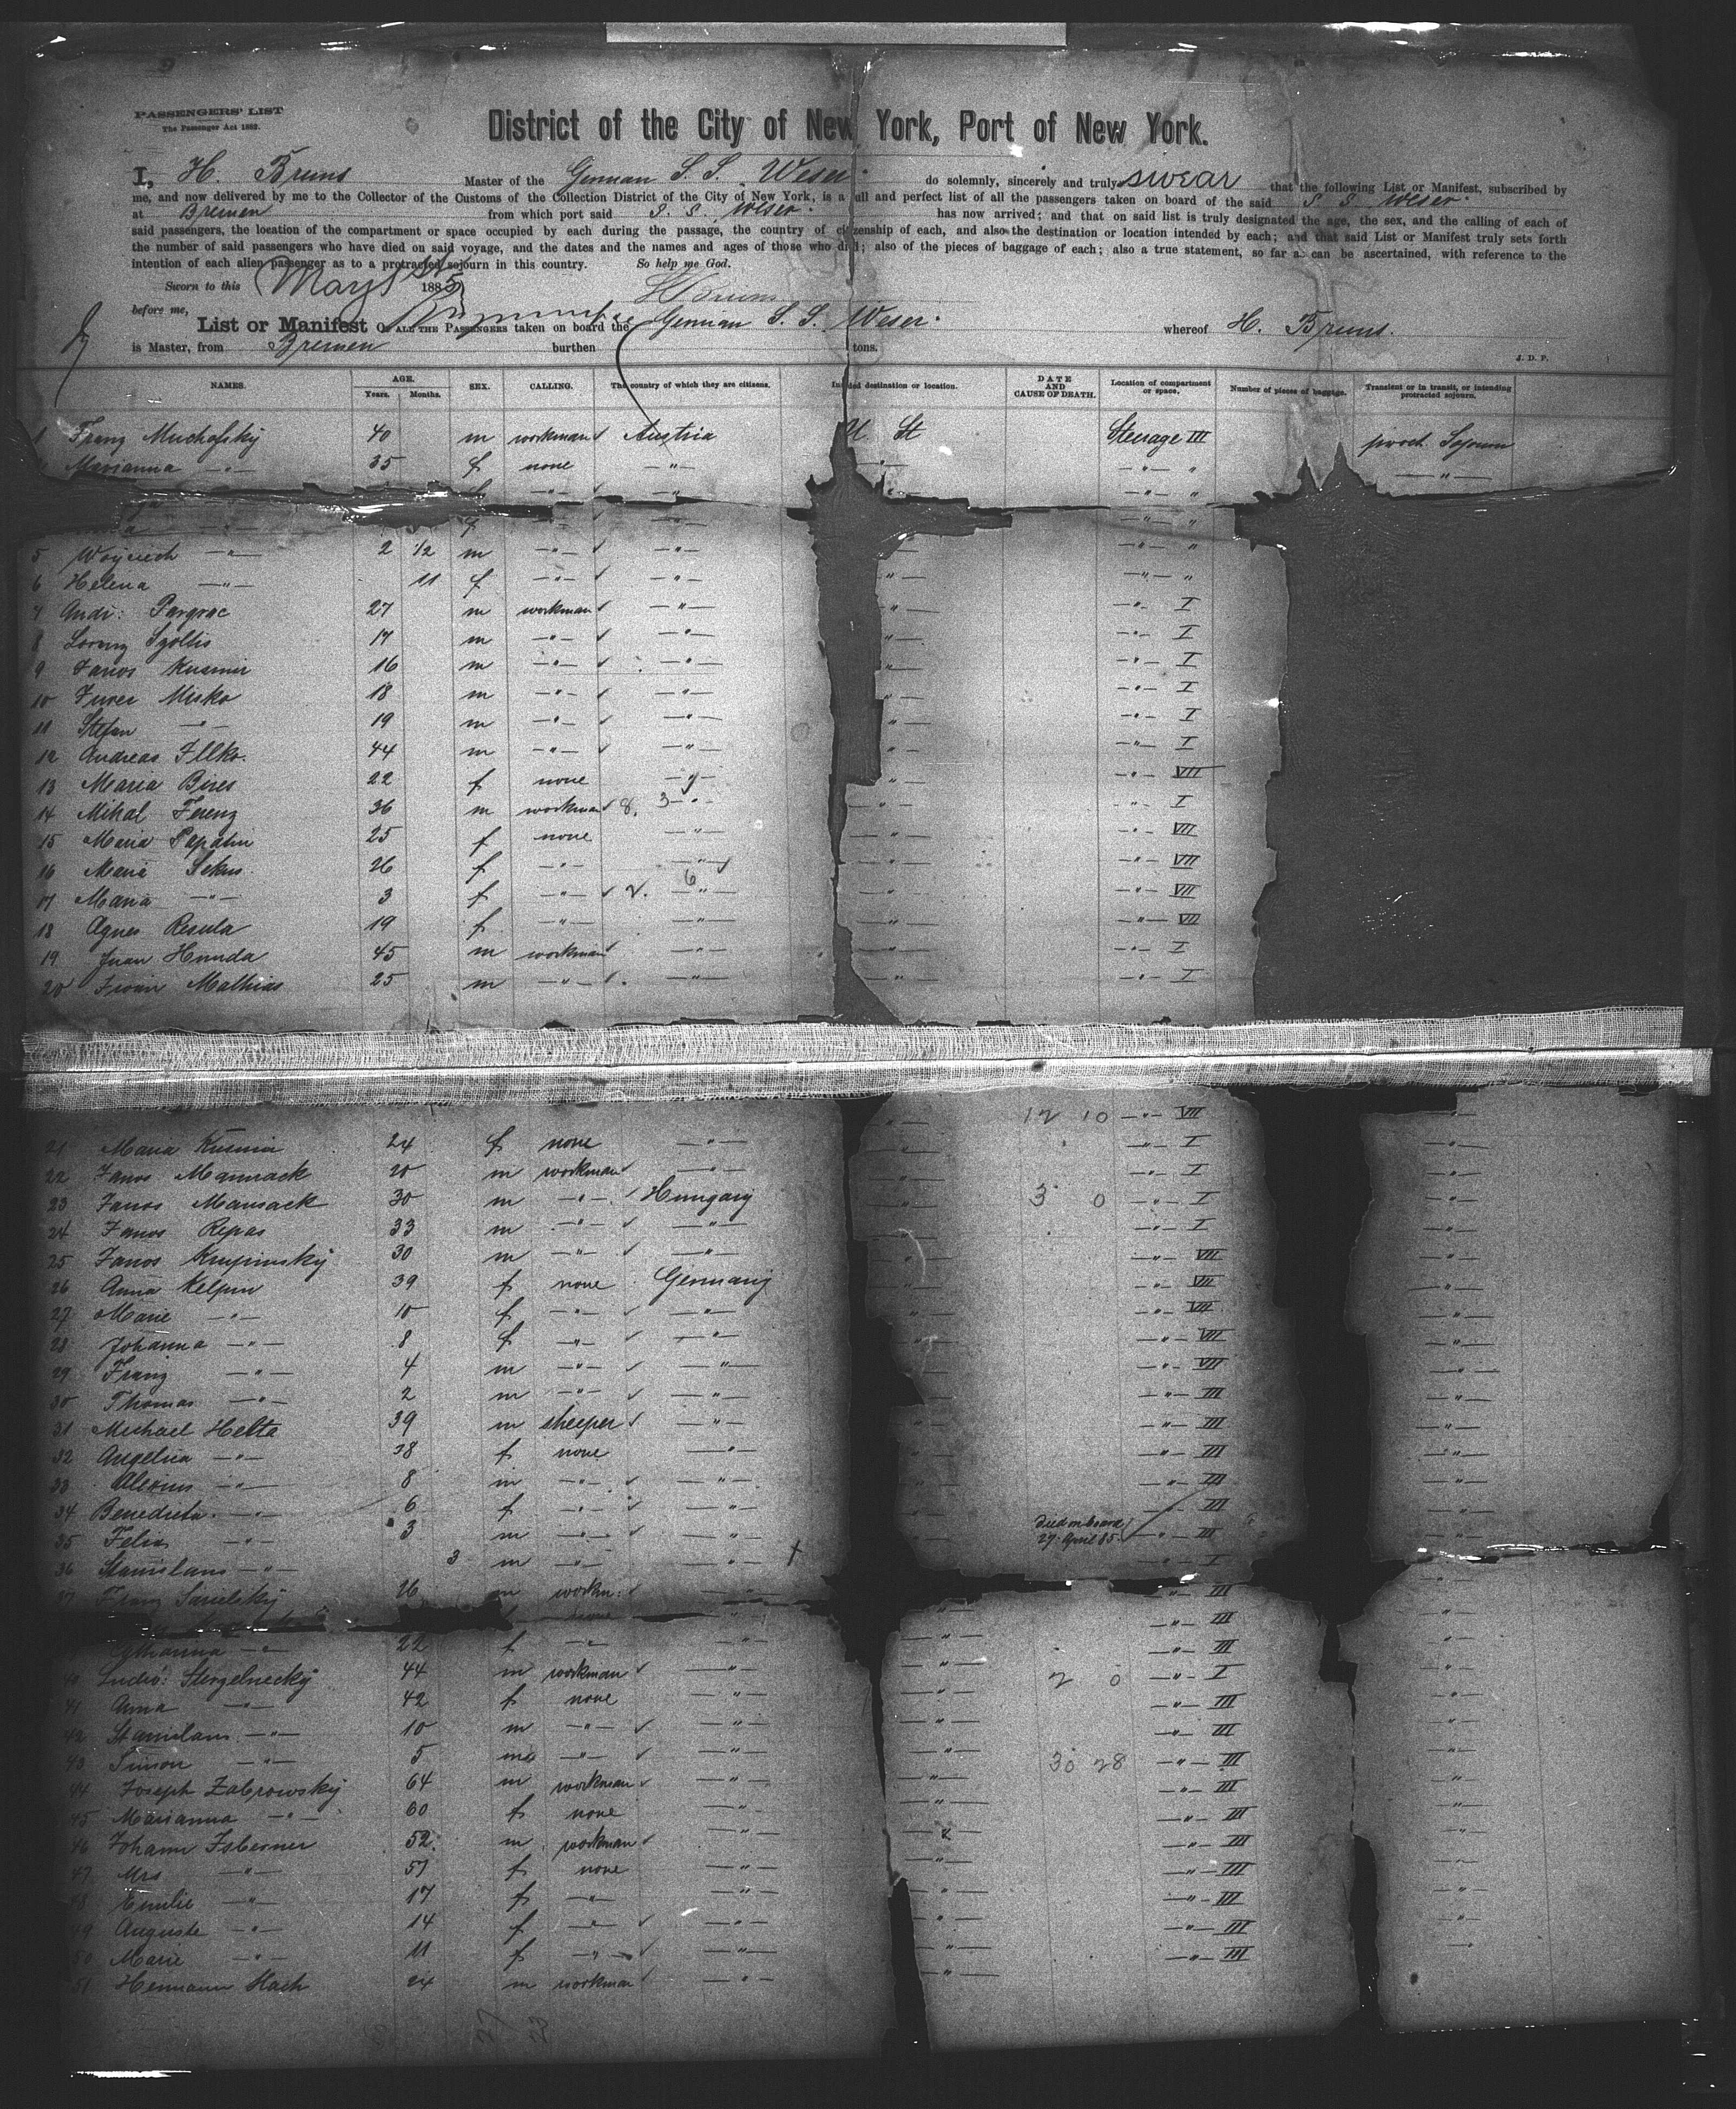 PASSENGERS' LIST
The Passenger Act 1882.
District of the City of New York, Port of New York.
I, H. Bruns Master of the German S. S. Weser. do solemnly, sincerely and truly swear that the following List or Manifest, subscribed by
me, and now delivered by me to the Collector of the Customs of the Collection District of the City of New York, is a full and perfect list of all the passengers taken on board of the said S. S. Weser.
at Bremen from which port said S. S. Weser. has now arrived; and that on said list is truly designated the age, the sex, and the calling of each of
said passengers, the location of the compartment or space occupied by each during the passage, the country of citizenship of each, and also the destination or location intended by each; and that said List or Manifest truly sets forth
the number of said passengers who have died on said voyage, and the dates and the names and ages of those who died; also of the pieces of baggage of each; also a true statement, so far as can be ascertained, with reference to the
intention of each alien passenger as to a protracted sojourn in this country. So help me God.
Sworn to this May 1885
H Bruns
before me,
List or Manifest OF ALL THE PASSENGERS taken on board the German S. S. Weser. whereof H. Bruns.
is Master, from Bremen burthen tons.
J. D. P.
NAMES. AGE. Years. Months. SEX. CALLING. The country of which they are citizens. Intended destination or location. DATE AND CAUSE OF DEATH. Location of compartment or space. Number of pieces of baggage. Transient or in transit, or intending protracted sojourn.
1 Franz Muchafsky 40 m workman Austria U. St Steerage III prot. Sojourn
Marianna —"— 35 f none —"— —"— " —"—
f —"— —"— —"— "
—"— f —"— "
5 Wojciech —"— 2 1/2 m —"— —"— —"— —"— "
6 Helena —"— 11 f —"— —"— —"— —"— "
7 Andr: Pargrac 27 m workman —"— —"— —"— I
8 Lorenz Szollis 17 m —"— —"— —"— —"— I
9 Janos Kusmir 16 m —"— —"— —"— —"— I
10 Jurei Misko 18 m —"— —"— —"— —"— I
11 Stefan —"— 19 m —"— —"— —"— —"— I
12 Andreas Illko. 44 m —"— —"— —"— —"— I
13 Maria Bires 22 f none —"— —"— —"— VII
14 Mihal Ferenz 36 m workman 8. 3 —"— —"— —"— I
15 Maria Papalin 25 f none —"— —"— —"— VII
16 Maria Sekus 26 f —"— —"— —"— —"— VII
17 Maria —"— 3 f —"— 2. 6 —"— —"— —"— VII
18 Agnes Resula 19 f —"— —"— —"— —"— VII
19 Juan Hounda 45 m workman —"— —"— —"— I
20 Iwan Mathias 25 m —"— —"— —"— —"— I
12 10 —"— VII
21 Maria Kusmia 24 f none —"— —"— —"— I
22 Janos Mamrack 20 m workman —"— —"— —"— I
23 Janos Mansack 30 m —"— Hungary —"— 3 0 —"— I
24 Janos Repas 33 m —"— —"— —"— —"— I
25 Janos Krupinsky 30 m —"— —"— —"— —"— VII
26 Anna Kelpin 39 f none Germany —"— —"— VII
27 Marie —"— 10 f —"— —"— —"— —"— VII
28 Johanna —"— 8 f —"— —"— —"— —"— VII
29 Franz —"— 4 m —"— —"— —"— —"— VII
30 Thomas —"— 2 m —"— —"— —"— —"— III
31 Michael Helta 39 m sheeper —"— —"— —"— III
32 Angelica —"— 38 f none —"— —"— —"— III
33 Alexius —"— 8 m —"— —"— —"— —"— III
34 Benedicta —"— 6 f —"— —"— —"— —"— III
35 Felix —"— 3 m —"— —"— Died on board 27. April 85. —"— III
36 Stanislaus —"— 3 m —"— —"— —"— I
37 Franz Sarielsky 26 m workm: —"— —"— III
none —"— —"— —"— III
—"— 22 f —"— —"— —"— —"— III
40 Andr: Stergelnecky 44 m workman —"— —"— 2 0 —"— I
41 Anna —"— 42 f none —"— —"— —"— III
42 Stanislaus —"— 10 m —"— —"— —"— —"— III
43 Simon —"— 5 m —"— —"— —"— 30 28 —"— III
44 Joseph Zabrowsky 64 m workman —"— —"— —"— III
45 Marianna —"— 60 f none —"— —"— —"— III
46 Johann Isberner 52 m workman —"— —"— —"— III
47 Mrs —"— 51 f none —"— —"— —"— III
48 Emilie —"— 17 f —"— —"— —"— —"— III
49 Auguste —"— 14 f —"— —"— —"— —"— III
50 Marie —"— 11 f —"— —"— —"— —"— III
51 Hermann Stach 24 m workman —"— —"—